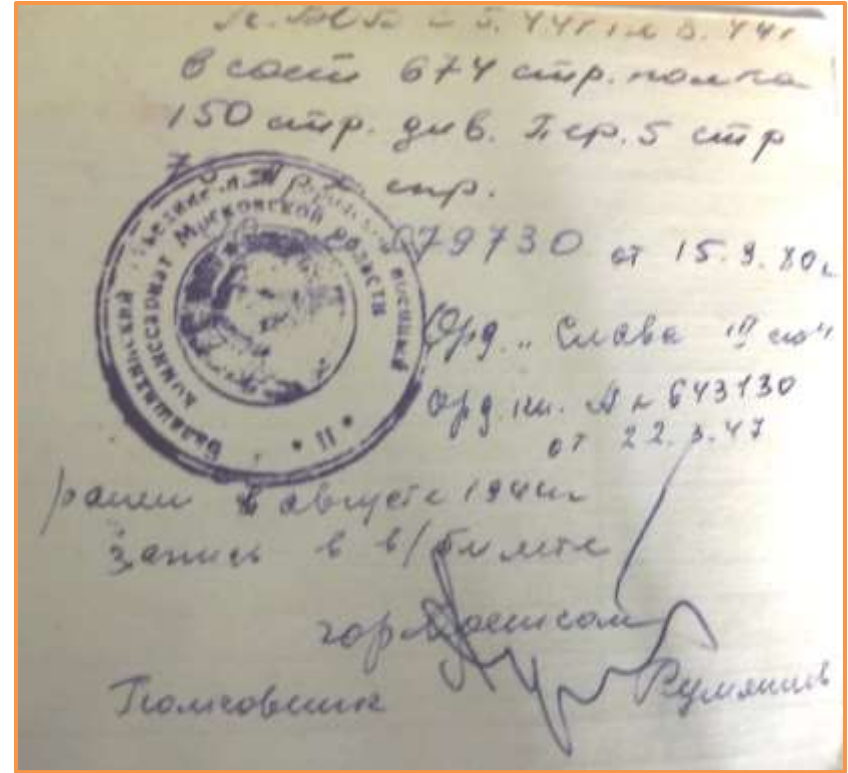 5.44г по 8.44г
в сост 674 стр. полка
150 стр. див. Пер. 5 стр
стр.
079730 от 15.9.80г
Орд. „Слава III ст"
Орд. кн. А № 643130
от 22.3.47
ранен в августе 1944г
Запись в в/билете
горвоенком
Полковник Румянцев
Балашихинский объединенный городской военный
комиссариат Московской области
* II *